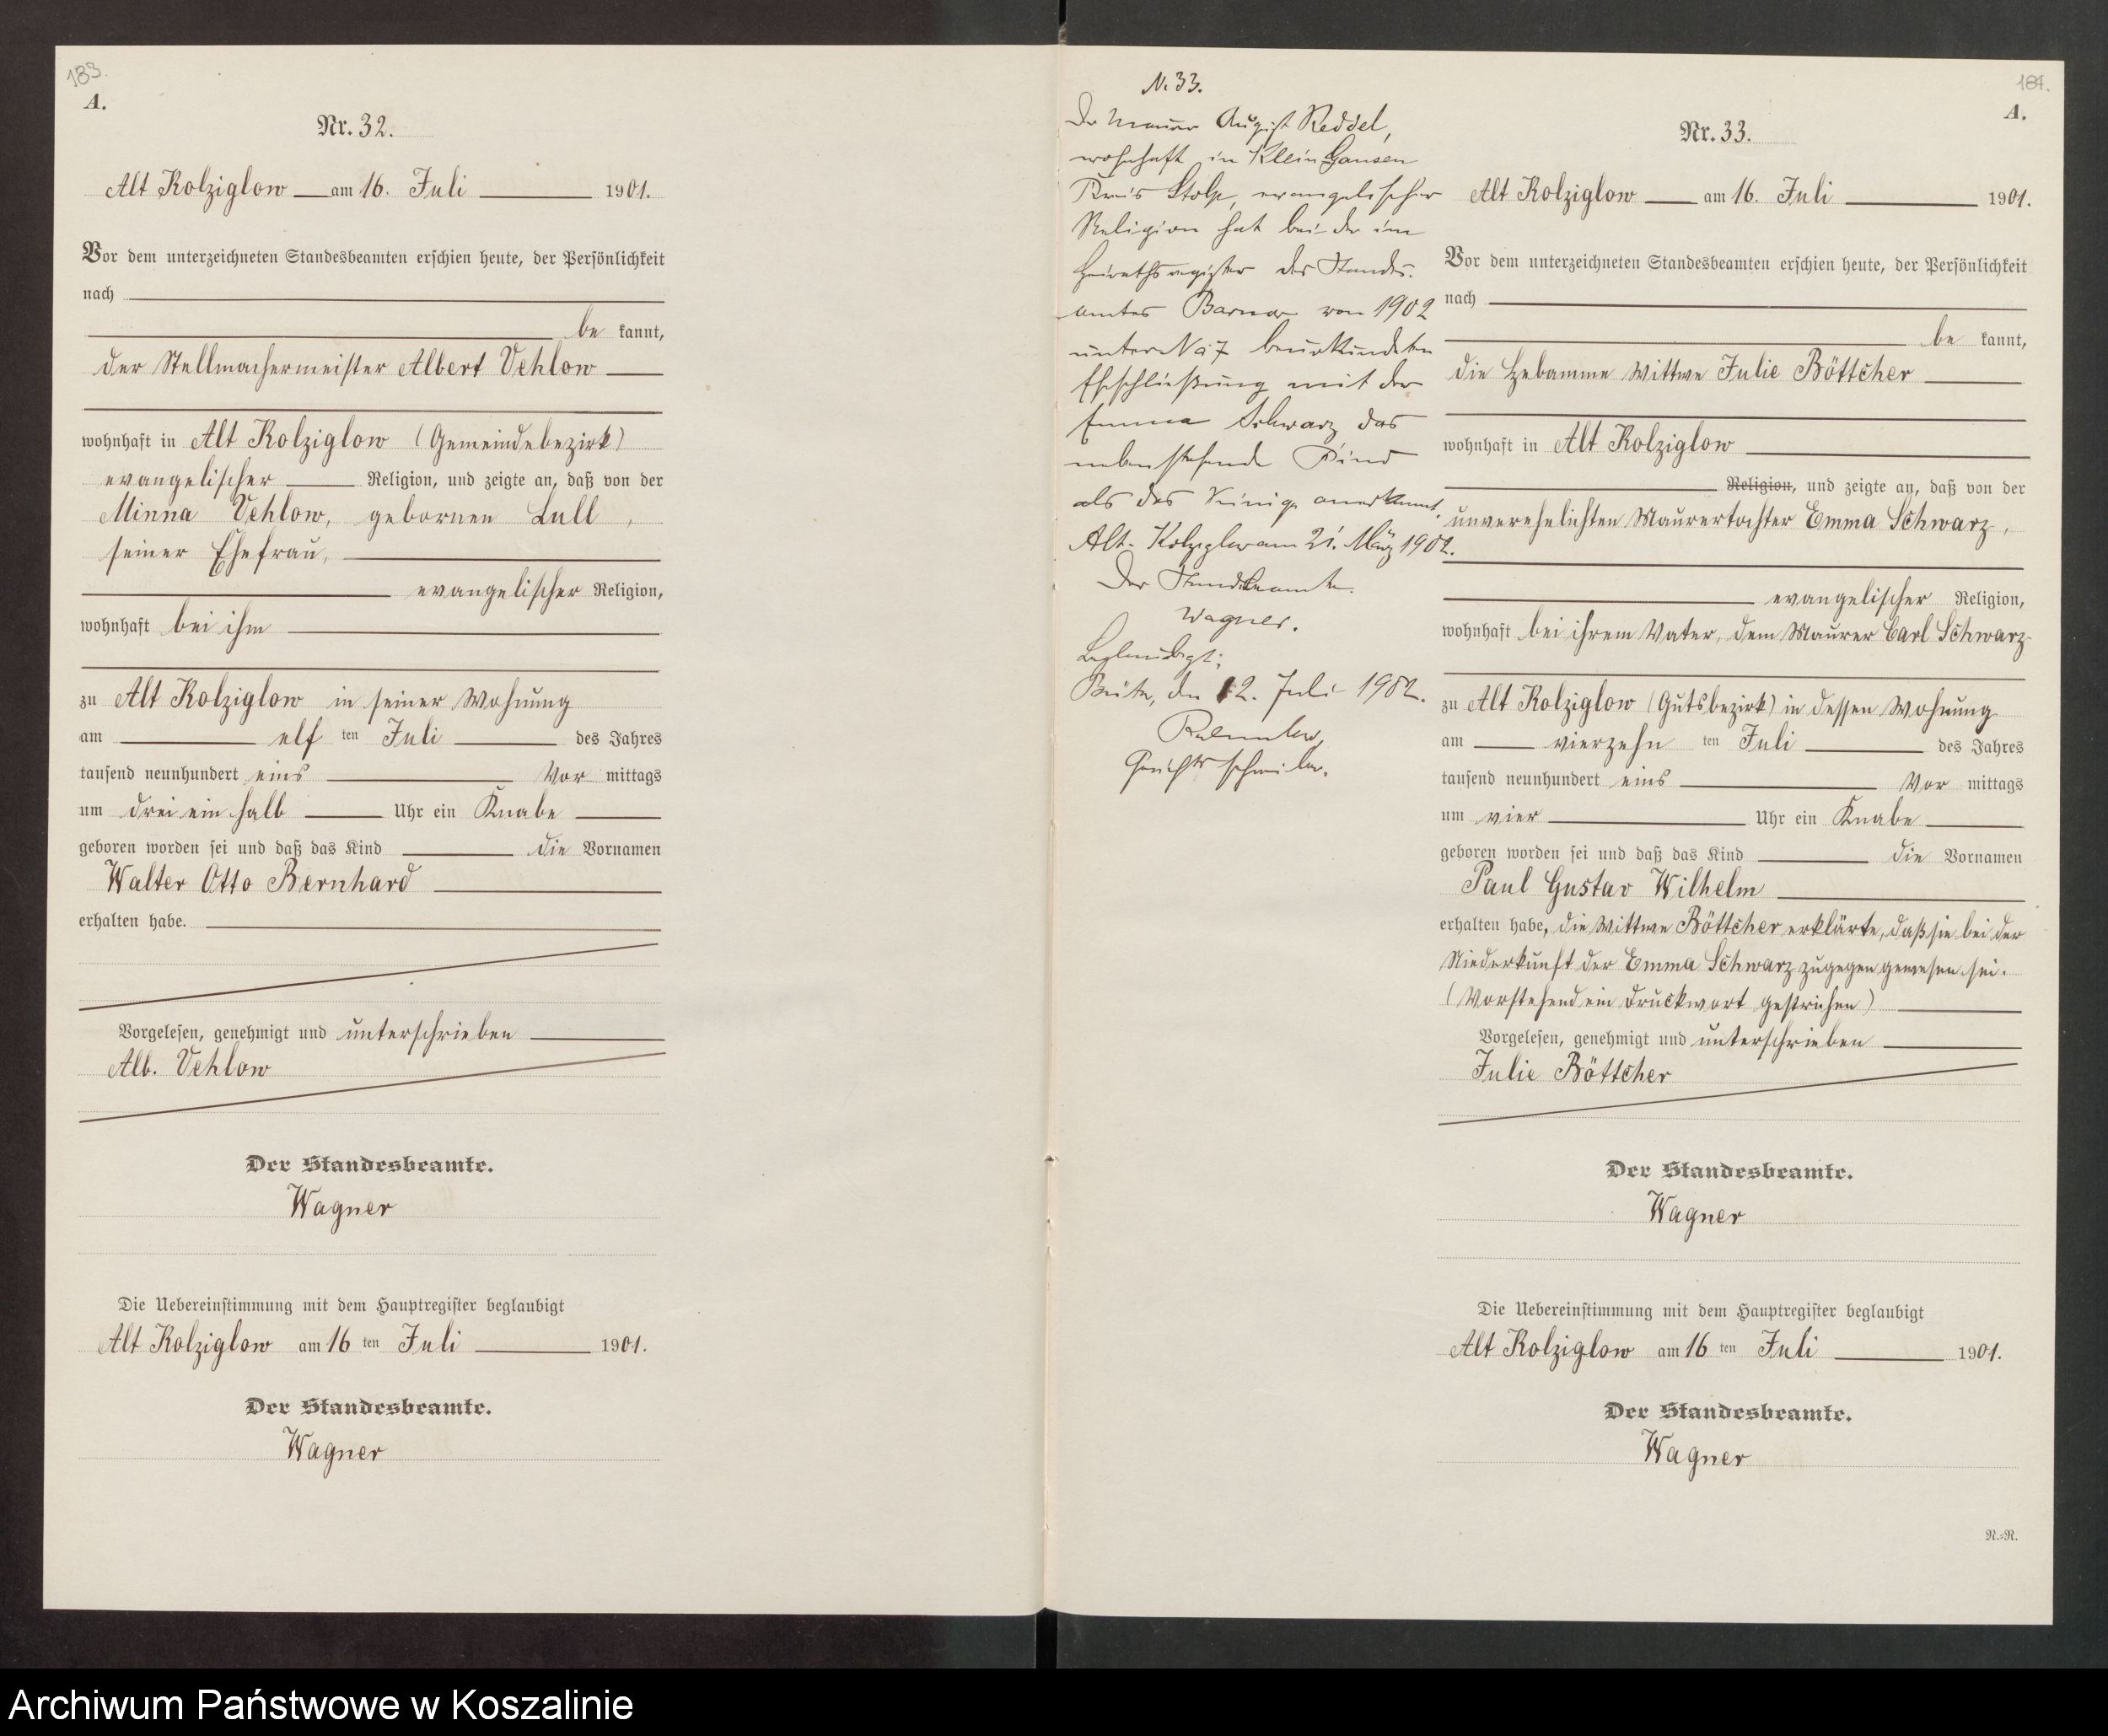 183.
A.
Nr. 32.
Alt Kolziglow am 16. Juli 1901.
Vor dem unterzeichneten Standesbeamten erschien heute, der Persönlichkeit
nach
be kannt,
der Stellmachermeister Albert Vehlow
wohnhaft in Alt Kolziglow (Gemeindebezirk)
evangelischer Religion, und zeigte an, daß von der
Minna Vehlow, gebornen Lull,
seiner Ehefrau,
evangelischer Religion,
wohnhaft bei ihm
zu Alt Kolziglow in seiner Wohnung
am elf ten Juli des Jahres
tausend neunhundert eins Vor mittags
um drei ein halb Uhr ein Knabe
geboren worden sei und daß das Kind die Vornamen
Walter Otto Bernhard
erhalten habe.
Vorgelesen, genehmigt und unterschrieben
Alb. Vehlow
Der Standesbeamte.
Wagner
Die Uebereinstimmung mit dem Hauptregister beglaubigt
Alt Kolziglow am 16 ten Juli 1901.
Der Standesbeamte.
Wagner
N. 33.
Der Maurer August Reddel,
wohnhaft in Klein Gansen
Kreis Stolp, evangelischer
Religion hat bei der im
Heirathsregister des Standes-
amtes Barnow von 1902
unter No 7 beurkundeten
Eheschließung mit der
Emma Schwarz das
nebenstehende Kind
als das Seinige anerkannt.
Alt-Kolziglow am 21. März 1902.
Der Standesbeamte.
Wagner.
Beglaubigt:
den 12. Juli 1902.
Gerichtsschreiber.
184.
A.
Nr. 33.
Alt Kolziglow am 16. Juli 1901.
Vor dem unterzeichneten Standesbeamten erschien heute, der Persönlichkeit
nach
be kannt,
die Hebamme Wittwe Julie Böttcher
wohnhaft in Alt Kolziglow
Religion, und zeigte an, daß von der
unverehelichten Maurertochter Emma Schwarz,
evangelischer Religion,
wohnhaft bei ihrem Vater, dem Maurer Carl Schwarz
zu Alt Kolziglow (Gutsbezirk) in dessen Wohnung
am vierzehn ten Juli des Jahres
tausend neunhundert eins Vor mittags
um vier Uhr ein Knabe
geboren worden sei und daß das Kind die Vornamen
Paul Gustav Wilhelm
erhalten habe, die Wittwe Böttcher erklärte, daß sie bei der
Niederkunft der Emma Schwarz zugegen gewesen sei.
(Vorstehend ein Druckwort gestrichen)
Vorgelesen, genehmigt und unterschrieben
Julie Böttcher
Der Standesbeamte.
Wagner
Die Uebereinstimmung mit dem Hauptregister beglaubigt
Alt Kolziglow am 16 ten Juli 1901.
Der Standesbeamte.
Wagner
N.-N.
Archiwum Państwowe w Koszalinie